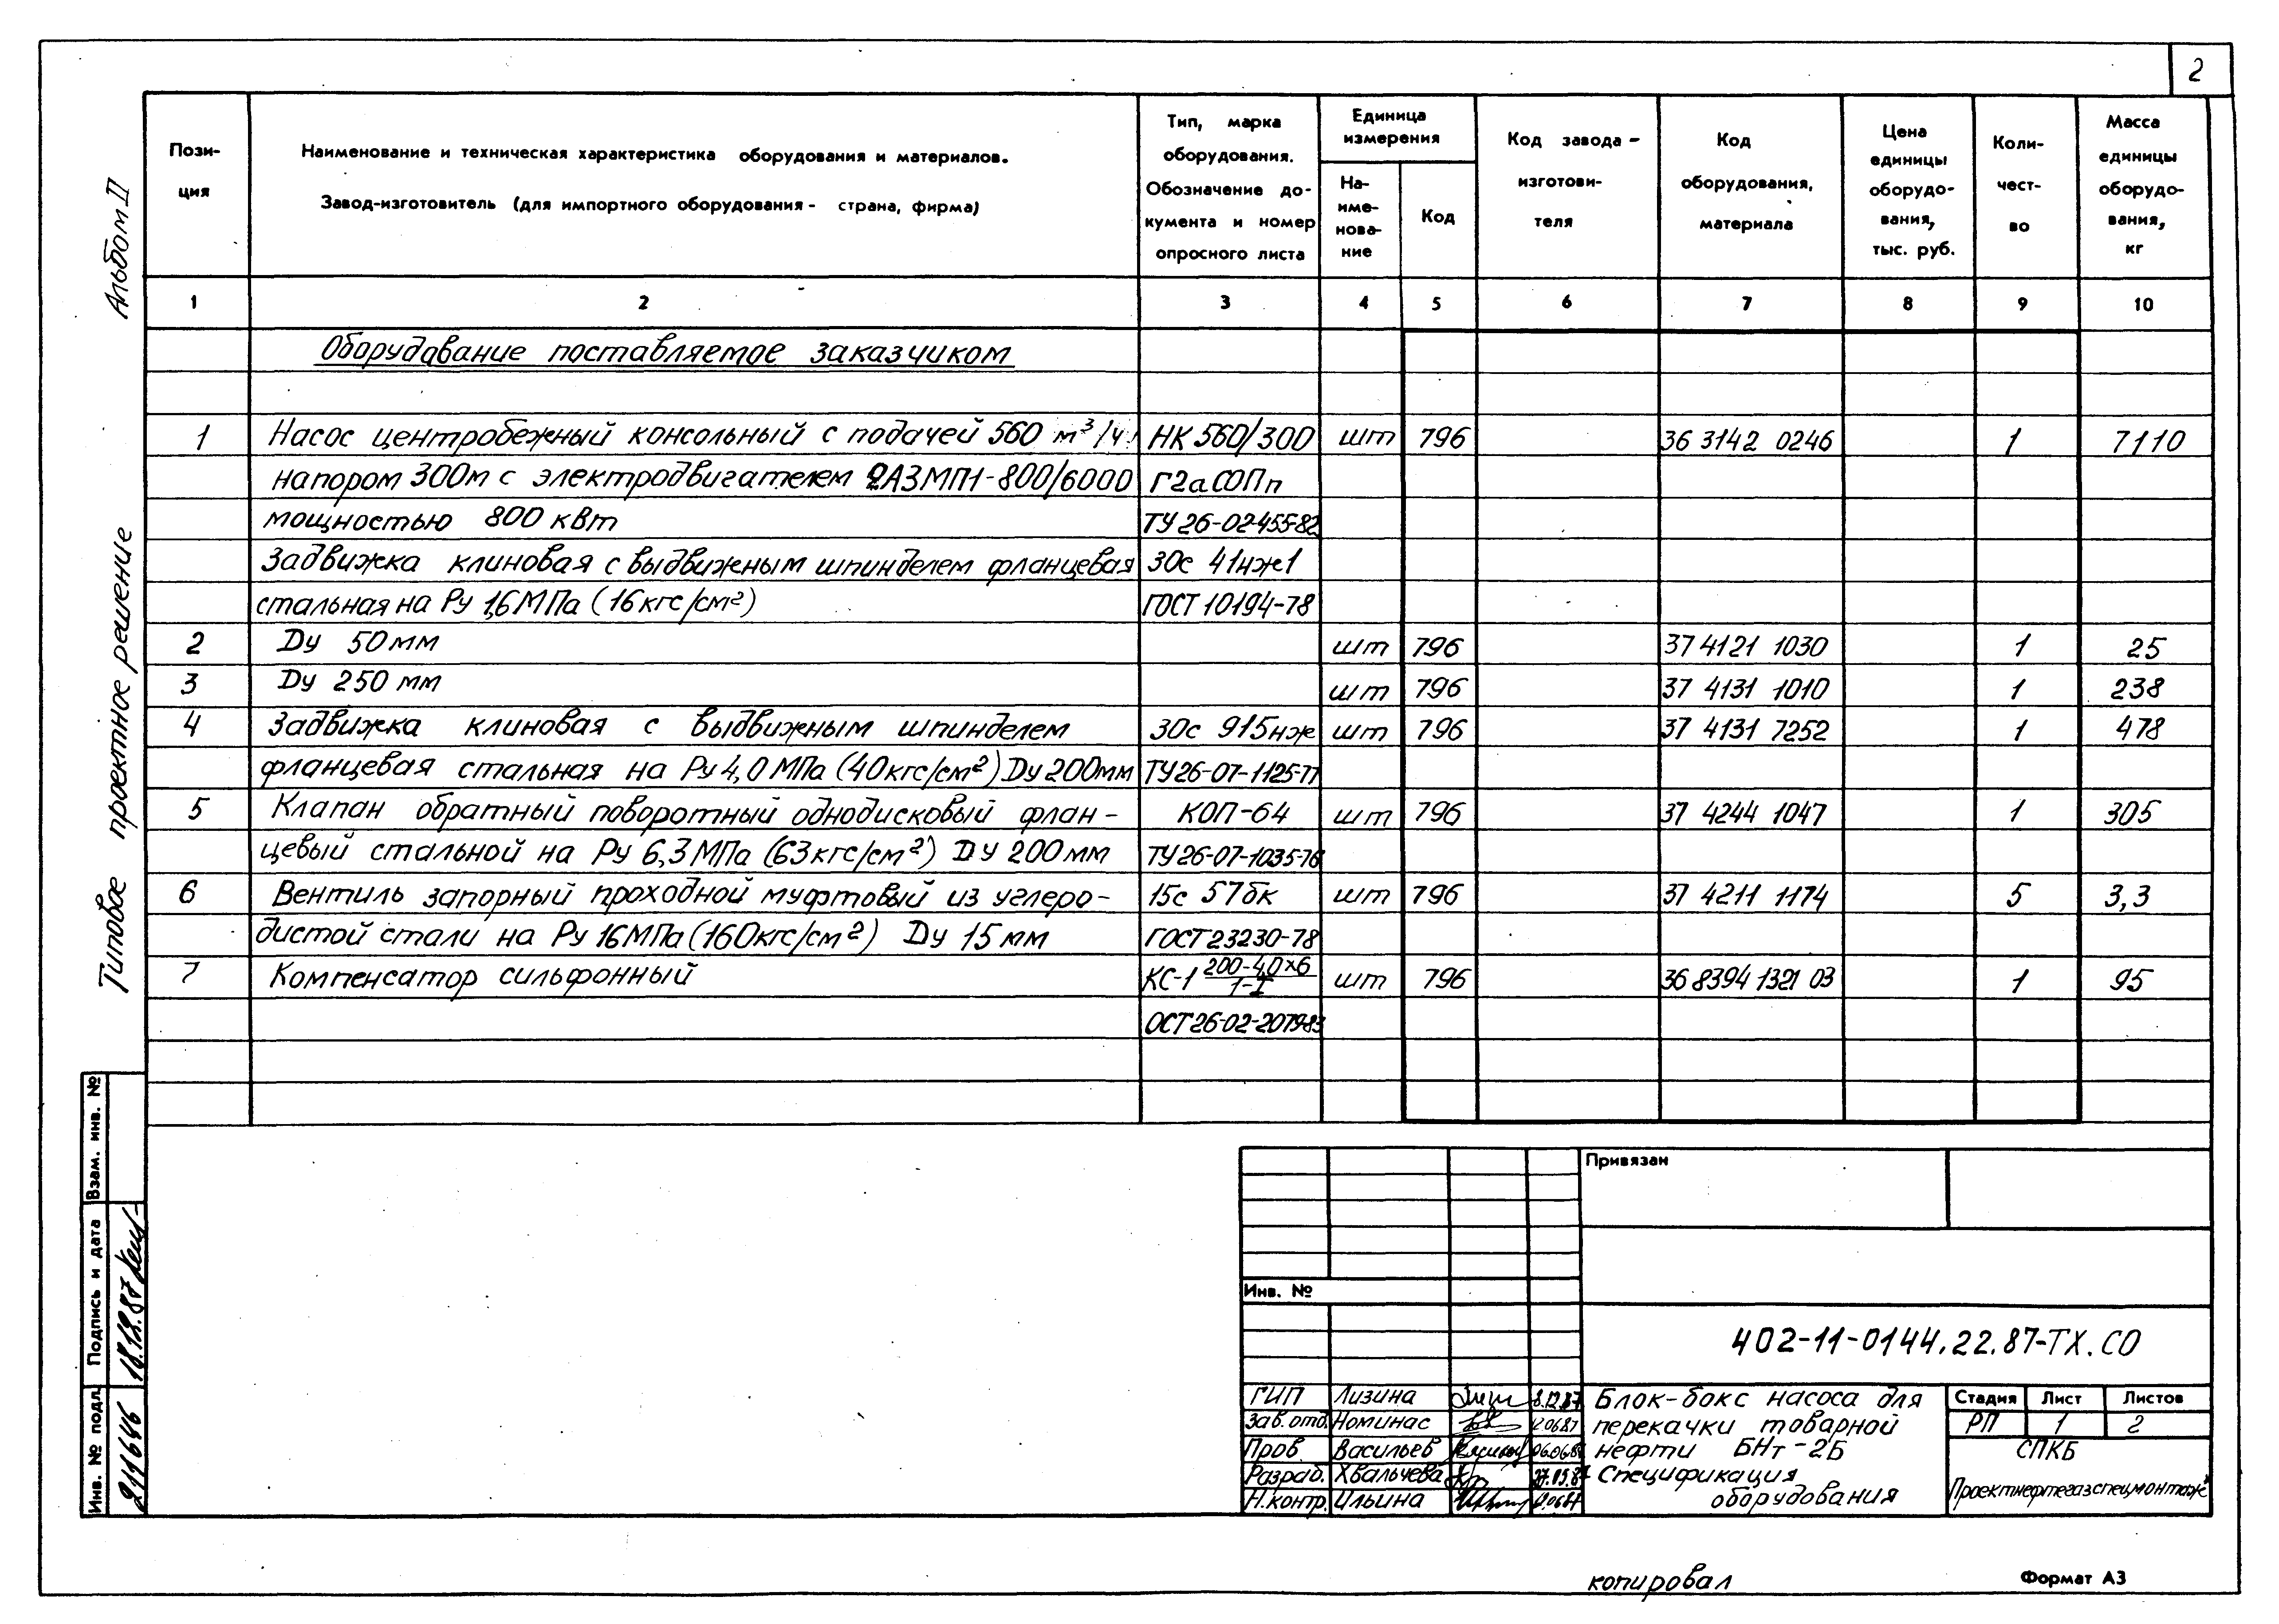 2
Альбом II
Типовое проектное решение
Пози-
ция
Наименование и техническая характеристика оборудования и материалов.
Завод-изготовитель (для импортного оборудования - страна, фирма)
Тип, марка
оборудования.
Обозначение до-
кумента и номер
опросного листа
Единица
измерения
На-
име-
нова-
ние
Код
Код завода-
изготови-
теля
Код
оборудования,
материала
Цена
единицы
оборудо-
вания,
тыс. руб.
Коли-
чест-
во
Масса
единицы
оборудо-
вания,
кг
1 2 3 4 5 6 7 8 9 10
Оборудование поставляемое заказчиком
1 Насос центробежный консольный с подачей 560 м³/ч НК 560/300 шт 796 36 3142 0246 1 7110
напором 300м с электродвигателем 2АЗМП1-800/6000 Г2аСОПп
мощностью 800 кВт ТУ 26-02-455-82
Задвижка клиновая с выдвижным шпинделем фланцевая 30с 41нж1
стальная на Ру 1,6 МПа (16кгс/см²) ГОСТ 10194-78
2 Ду 50мм шт 796 37 4121 1030 1 25
3 Ду 250 мм шт 796 37 4131 1010 1 238
4 Задвижка клиновая с выдвижным шпинделем 30с 915нж шт 796 37 4131 7252 1 478
фланцевая стальная на Ру 4,0 МПа (40кгс/см²) Ду 200мм ТУ26-07-1125-77
5 Клапан обратный поворотный однодисковый флан- КОП-64 шт 796 37 4244 1047 1 305
цевый стальной на Ру 6,3 МПа (63кгс/см²) Ду 200мм ТУ26-07-1035-76
6 Вентиль запорный проходной муфтовый из углеро- 15с 57бк шт 796 37 4211 1174 5 3,3
дистой стали на Ру 16МПа (160кгс/см²) Ду 15 мм ГОСТ 23230-78
7 Компенсатор сильфонный КС-1 200-40×6/1-I шт 796 36 8394 1321 03 1 95
ОСТ26-02-2079-83
Взам. инв. №
Подпись и дата 18.12.87
Инв. № подл. 211646
Привязан
Инв. №
402-11-0144.22.87-ТХ.СО
ГИП Лизина 8.12.87
Зав. отд. Номинас 12.06.87
Пров. Васильев
Разраб. Хвальчева 27.05.87
Н.контр. Ильина
Блок-бокс насоса для
перекачки товарной
нефти БНт-2Б
Спецификация
оборудования
Стадия Лист Листов
РП 1 2
СПКБ
Проектнефтегазспецмонтаж
копировал
Формат А3